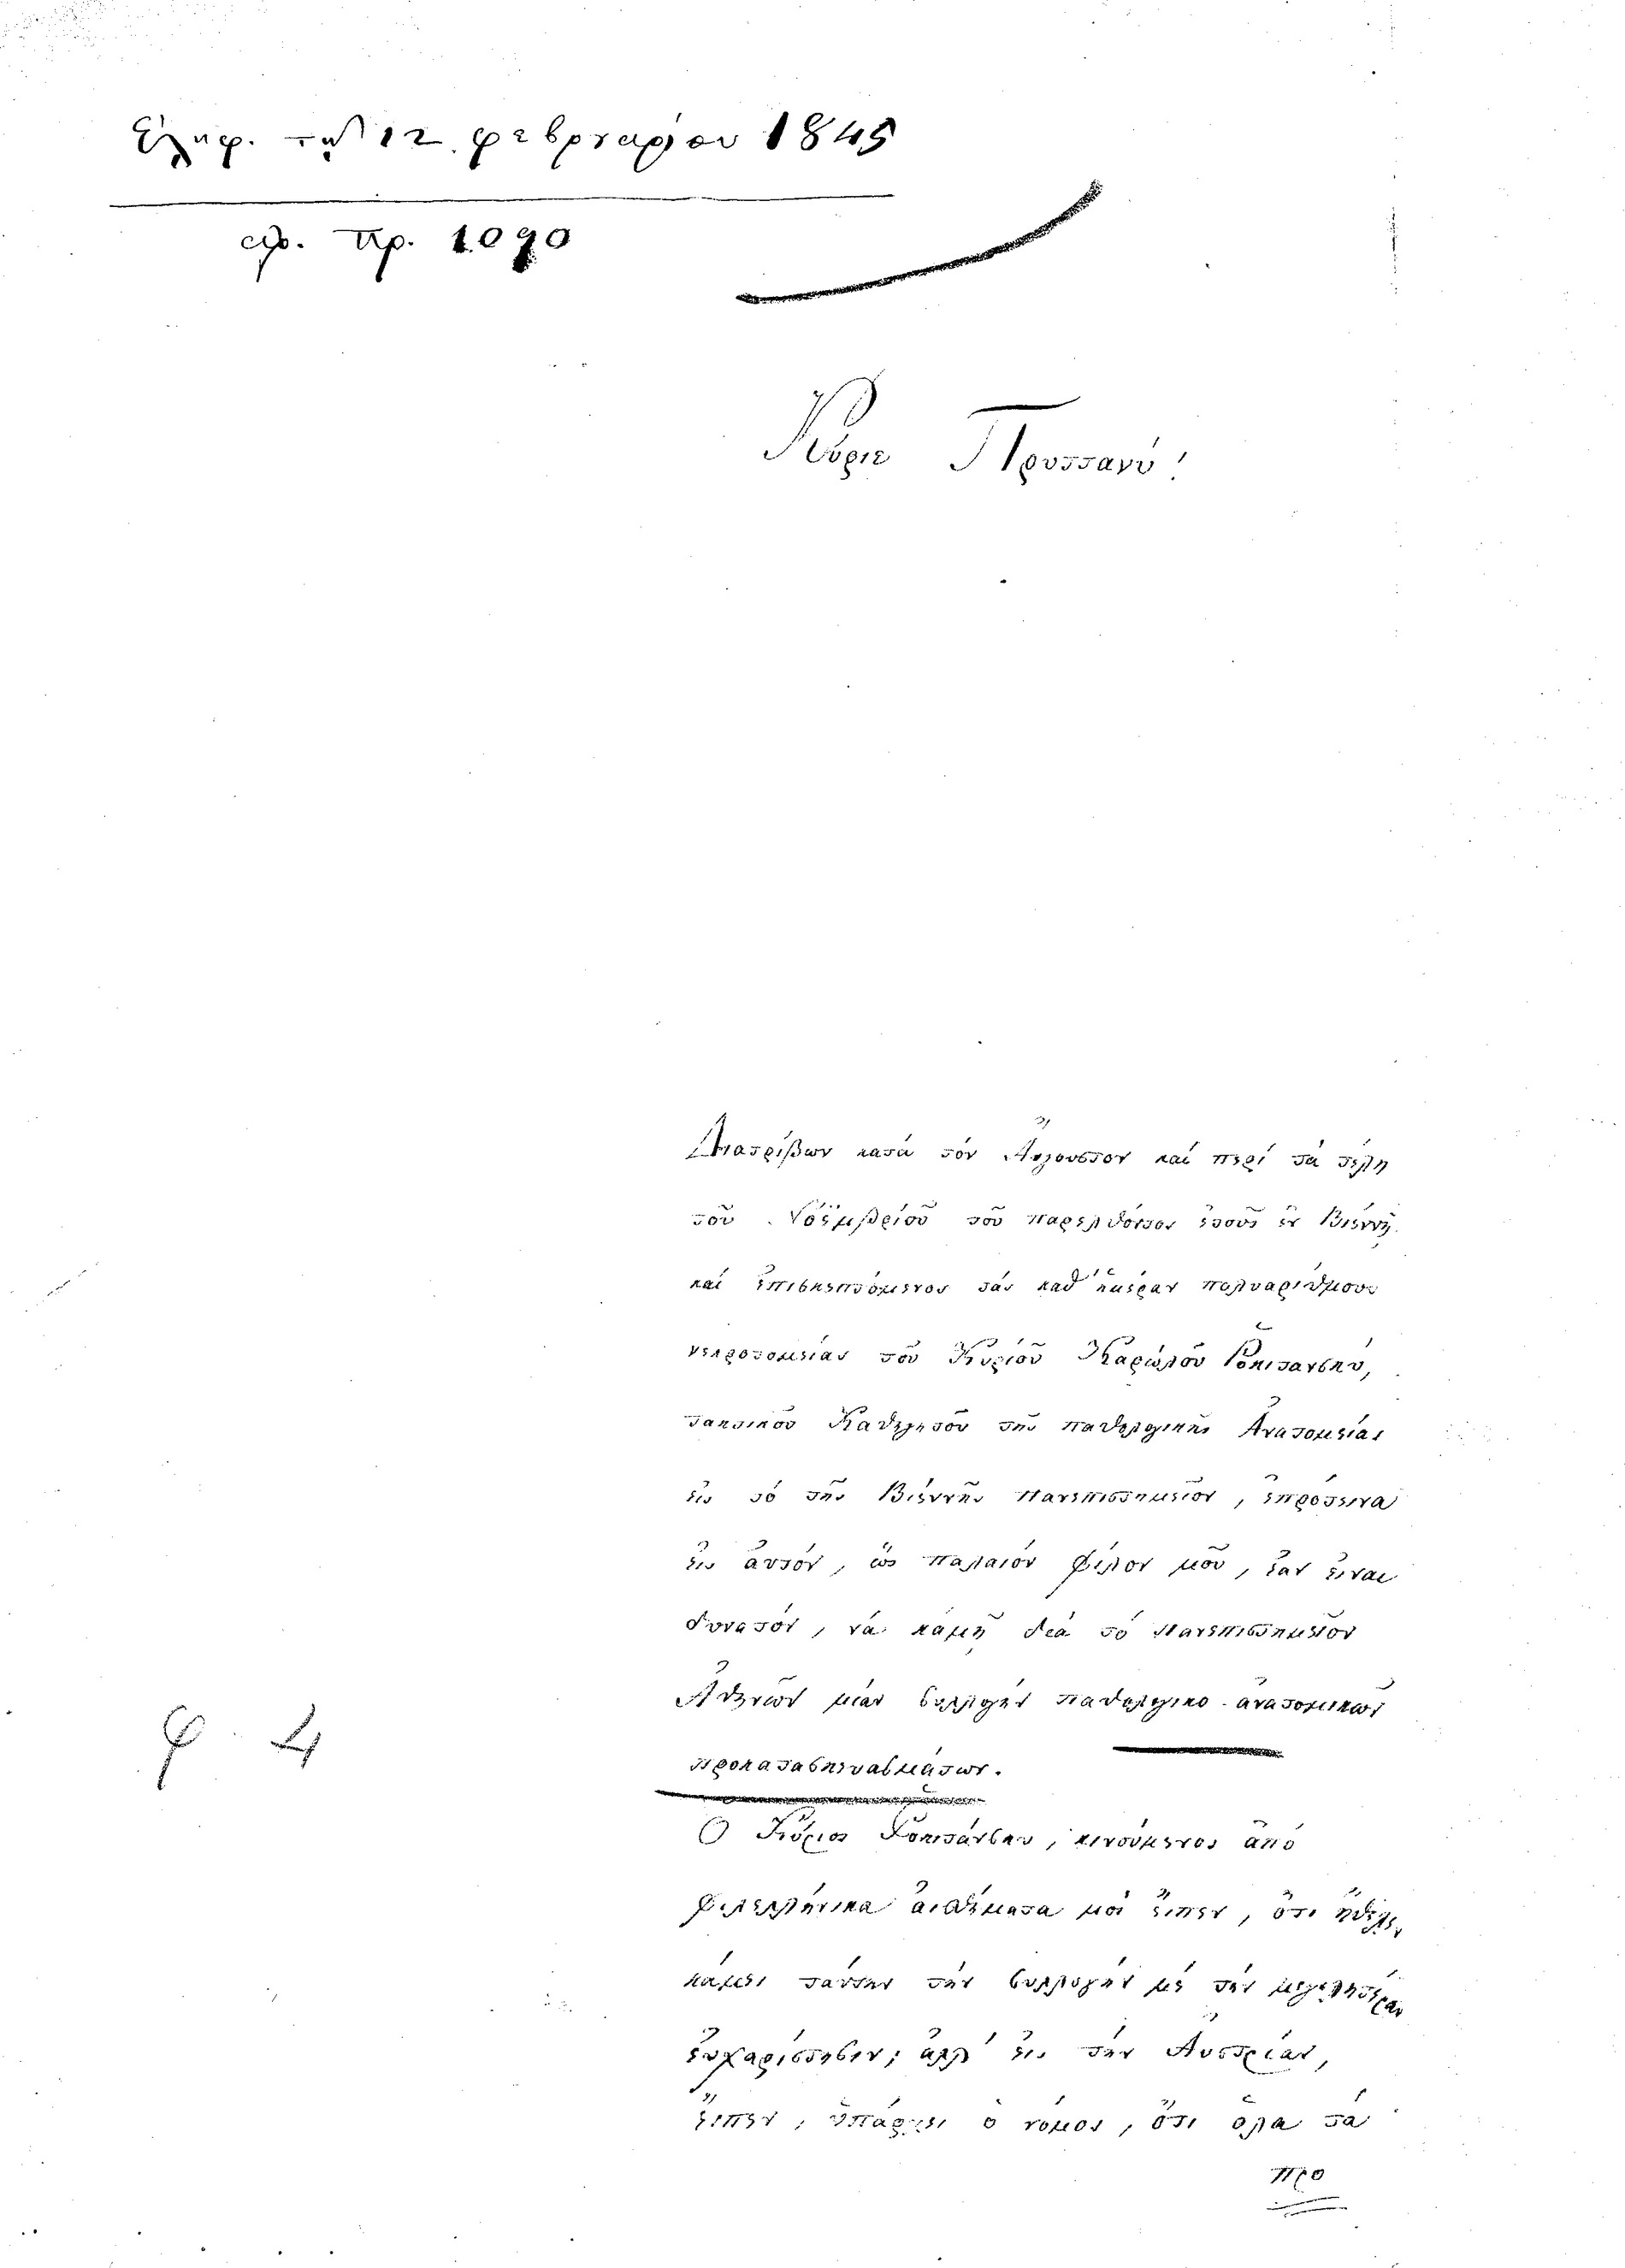 Ἐλήφ. τῇ 12 φεβρουαρίου 1845
ἀρ. πρ. 1090
Κύριε Πρύτανι!
Διατρίβων κατὰ τὸν Αὔγουστον καὶ περὶ τὰ τέλη
τοῦ Νοεμβρίου τοῦ παρελθόντος ἔτους ἐν Βιέννῃ
καὶ ἐπισκεπτόμενος τὰς καθ' ἡμέραν πολυαρίθμους
νεκροτομίας τοῦ Κυρίου Καρώλου Ῥοκιτάνσκυ,
τακτικοῦ Καθηγητοῦ τῆς παθολογικῆς Ἀνατομίας
εἰς τὸ τῆς Βιέννης Πανεπιστημεῖον, ἐπρότεινα
εἰς αὐτόν, ὡς παλαιὸν φίλον μου, ἐὰν εἶναι
δυνατόν, νὰ κάμῃ διὰ τὸ Πανεπιστημεῖον
Ἀθηνῶν μίαν συλλογὴν παθολογικο-ἀνατομικῶν
προκατασκευασμάτων.
φ 4
Ὁ Κύριος Ῥοκιτάνσκυ, κινούμενος ἀπὸ
φιλελληνικὰ αἰσθήματα μοὶ εἶπεν, ὅτι ἤθελε
κάμει ταύτην τὴν συλλογὴν μὲ τὴν μεγαλητέραν
εὐχαρίστησιν; ἀλλ' εἰς τὴν Αὐστρίαν,
εἶπεν, ὑπάρχει ὁ νόμος, ὅτι ὅλα τὰ
προ